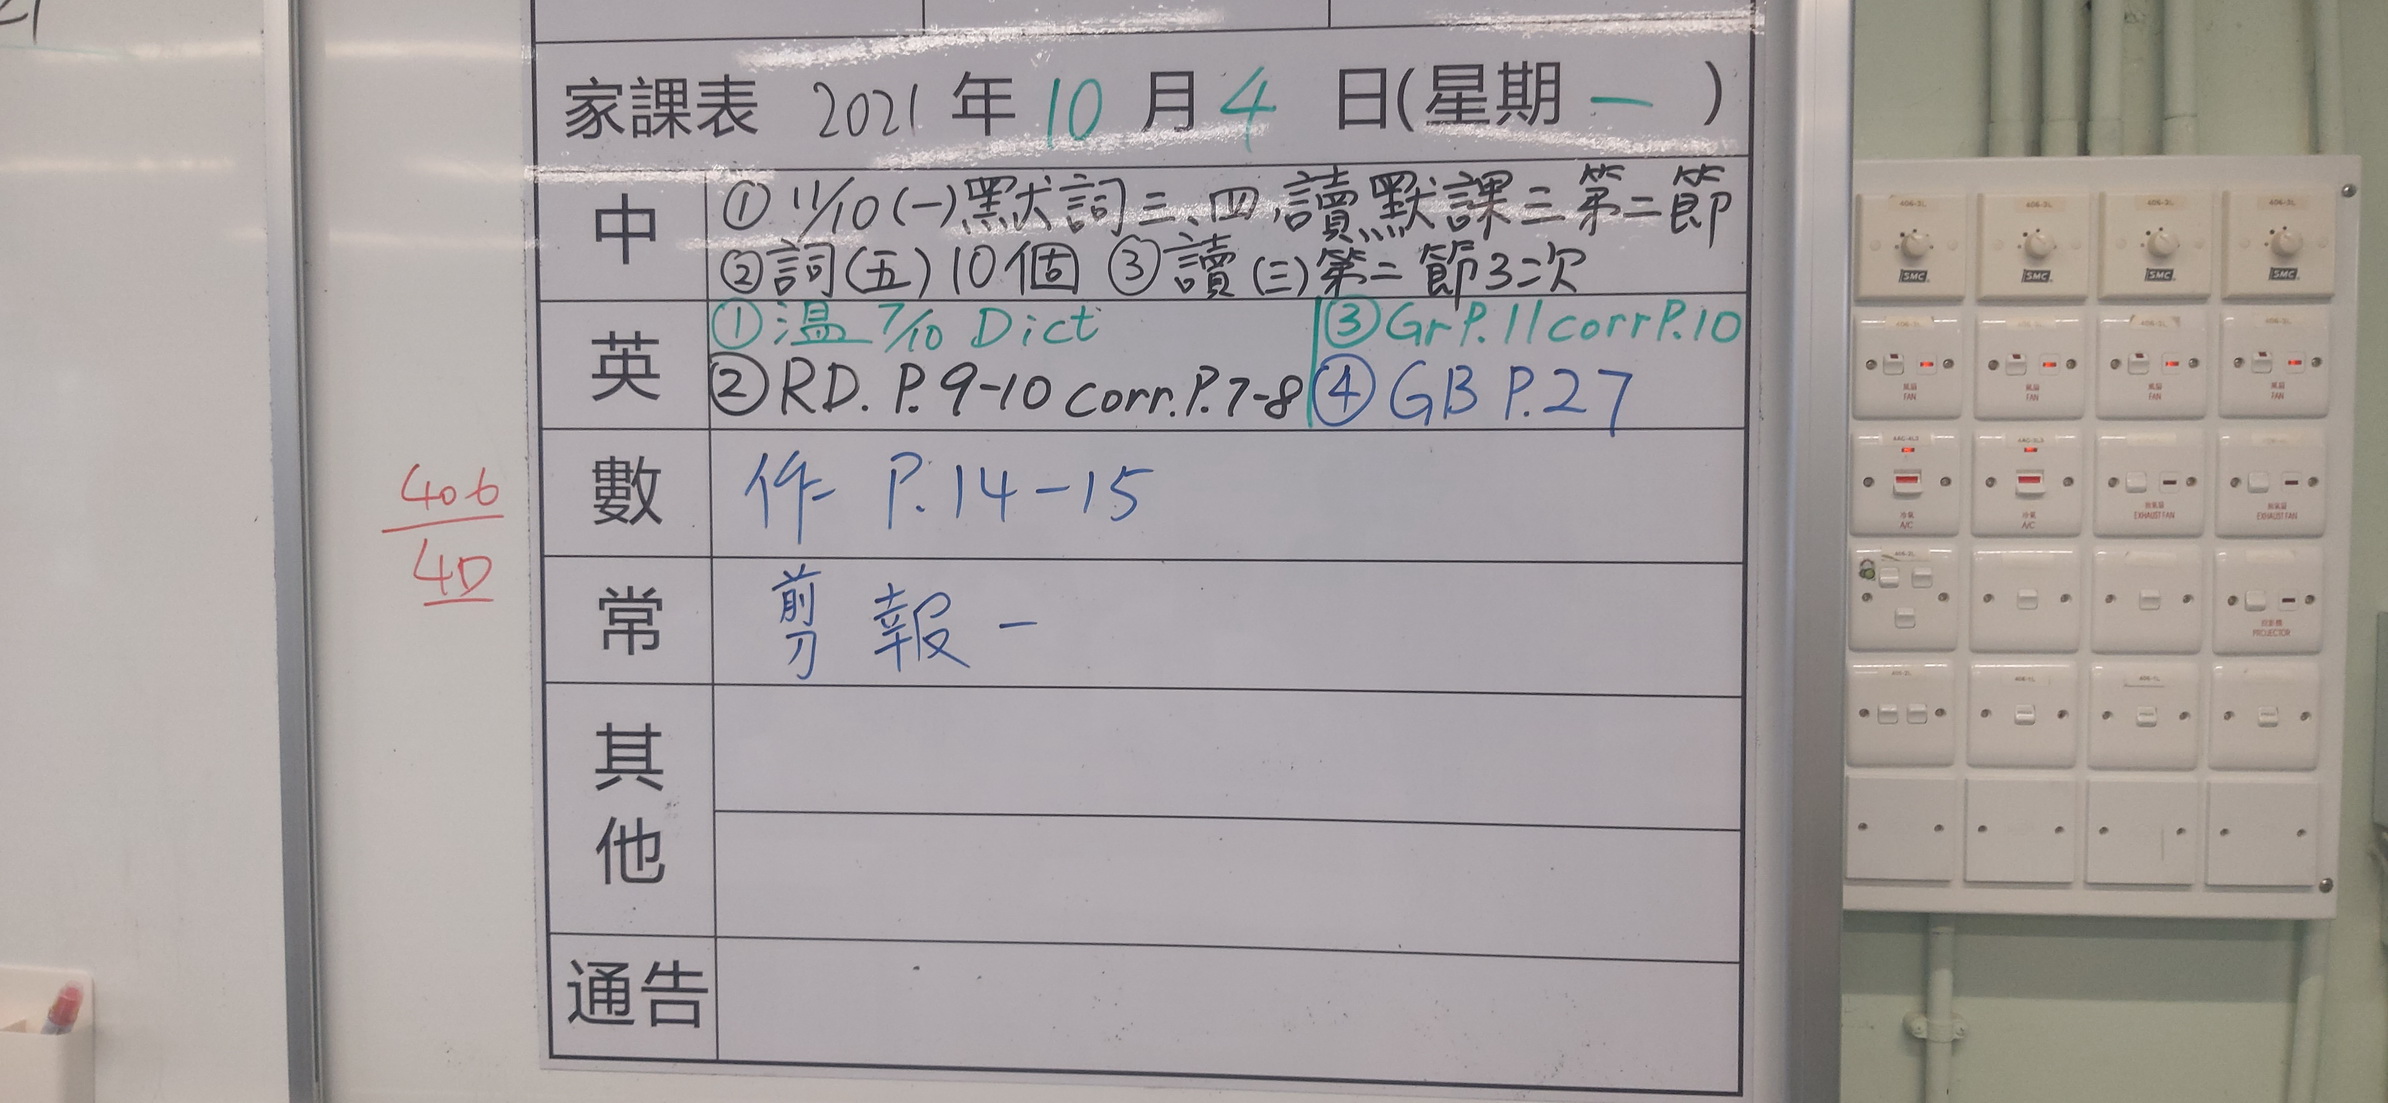 家課表 2021 年 10 月 4 日(星期 一 )
中
① 11/10 (一)默詞三、四,讀默課三第二節
②詞(五)10個 ③讀(三)第二節3次
英
①溫 7/10 Dict
②RD. P.9-10 corr.P.7-8
③Gr P.11 corr P.10
④GB P.27
數
作 P.14-15
常
剪報一
其他
通告
406
4D
406-2L
406-2L
406-2L
406-2L
SMC
SMC
SMC
SMC
風扇
FAN
風扇
FAN
風扇
FAN
風扇
FAN
冷氣
A/C
冷氣
A/C
抽氣扇
EXHAUST FAN
抽氣扇
EXHAUST FAN
投影機
PROJECTOR